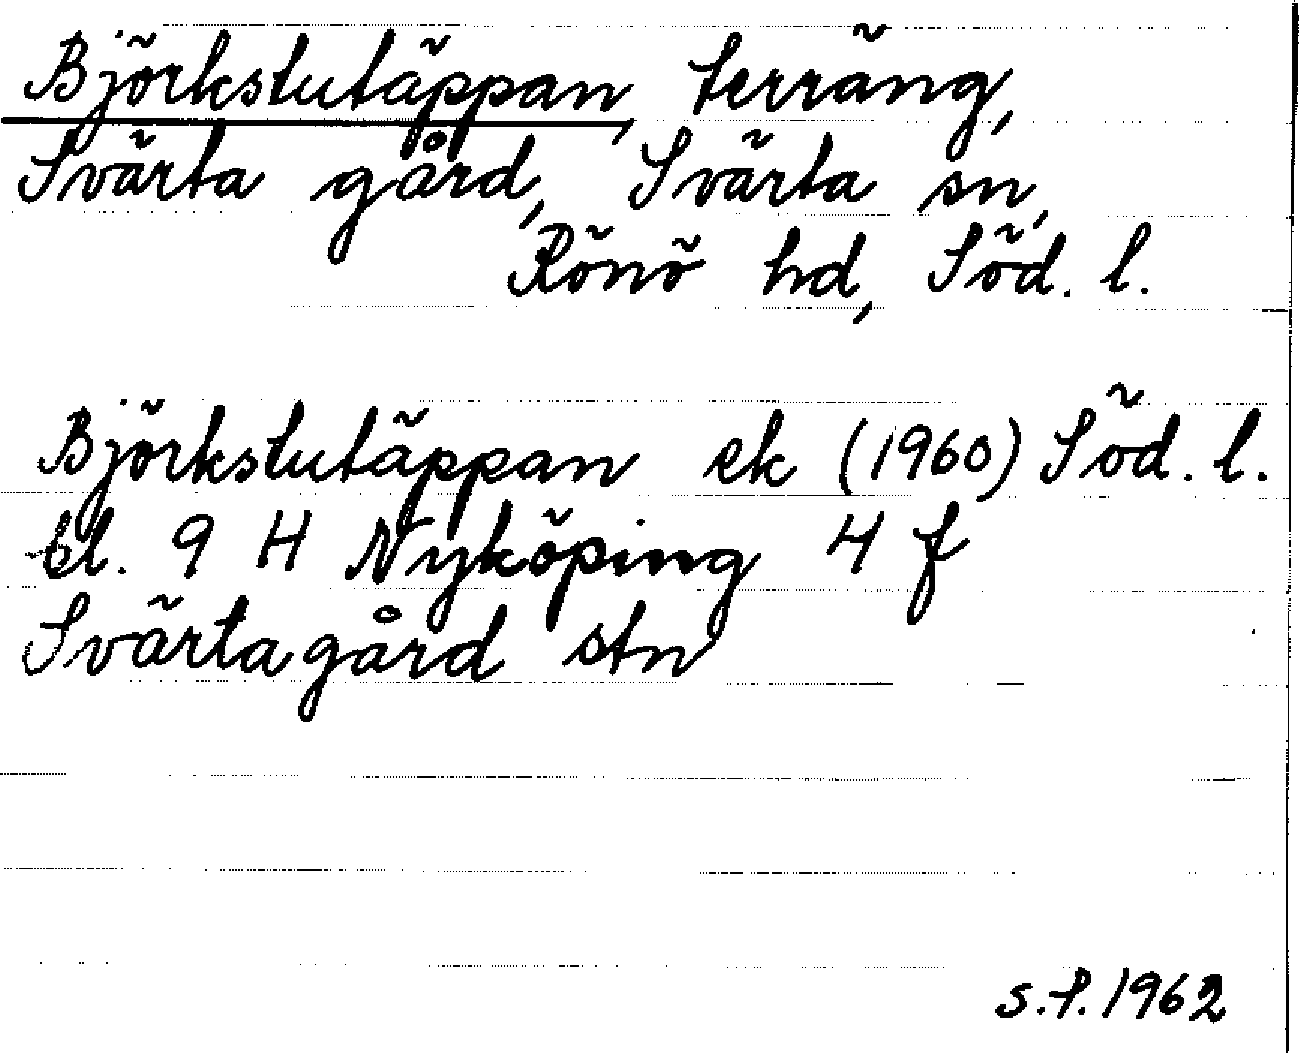 Björkstutäppan, terräng,
Svärta gård, Svärta sn,
Rönö hd, Söd. l.
Björkstutäppan ek (1960) Söd. l.
bl. 9 H Nyköping 4 f
Svärta gård stn
s.f. 1962